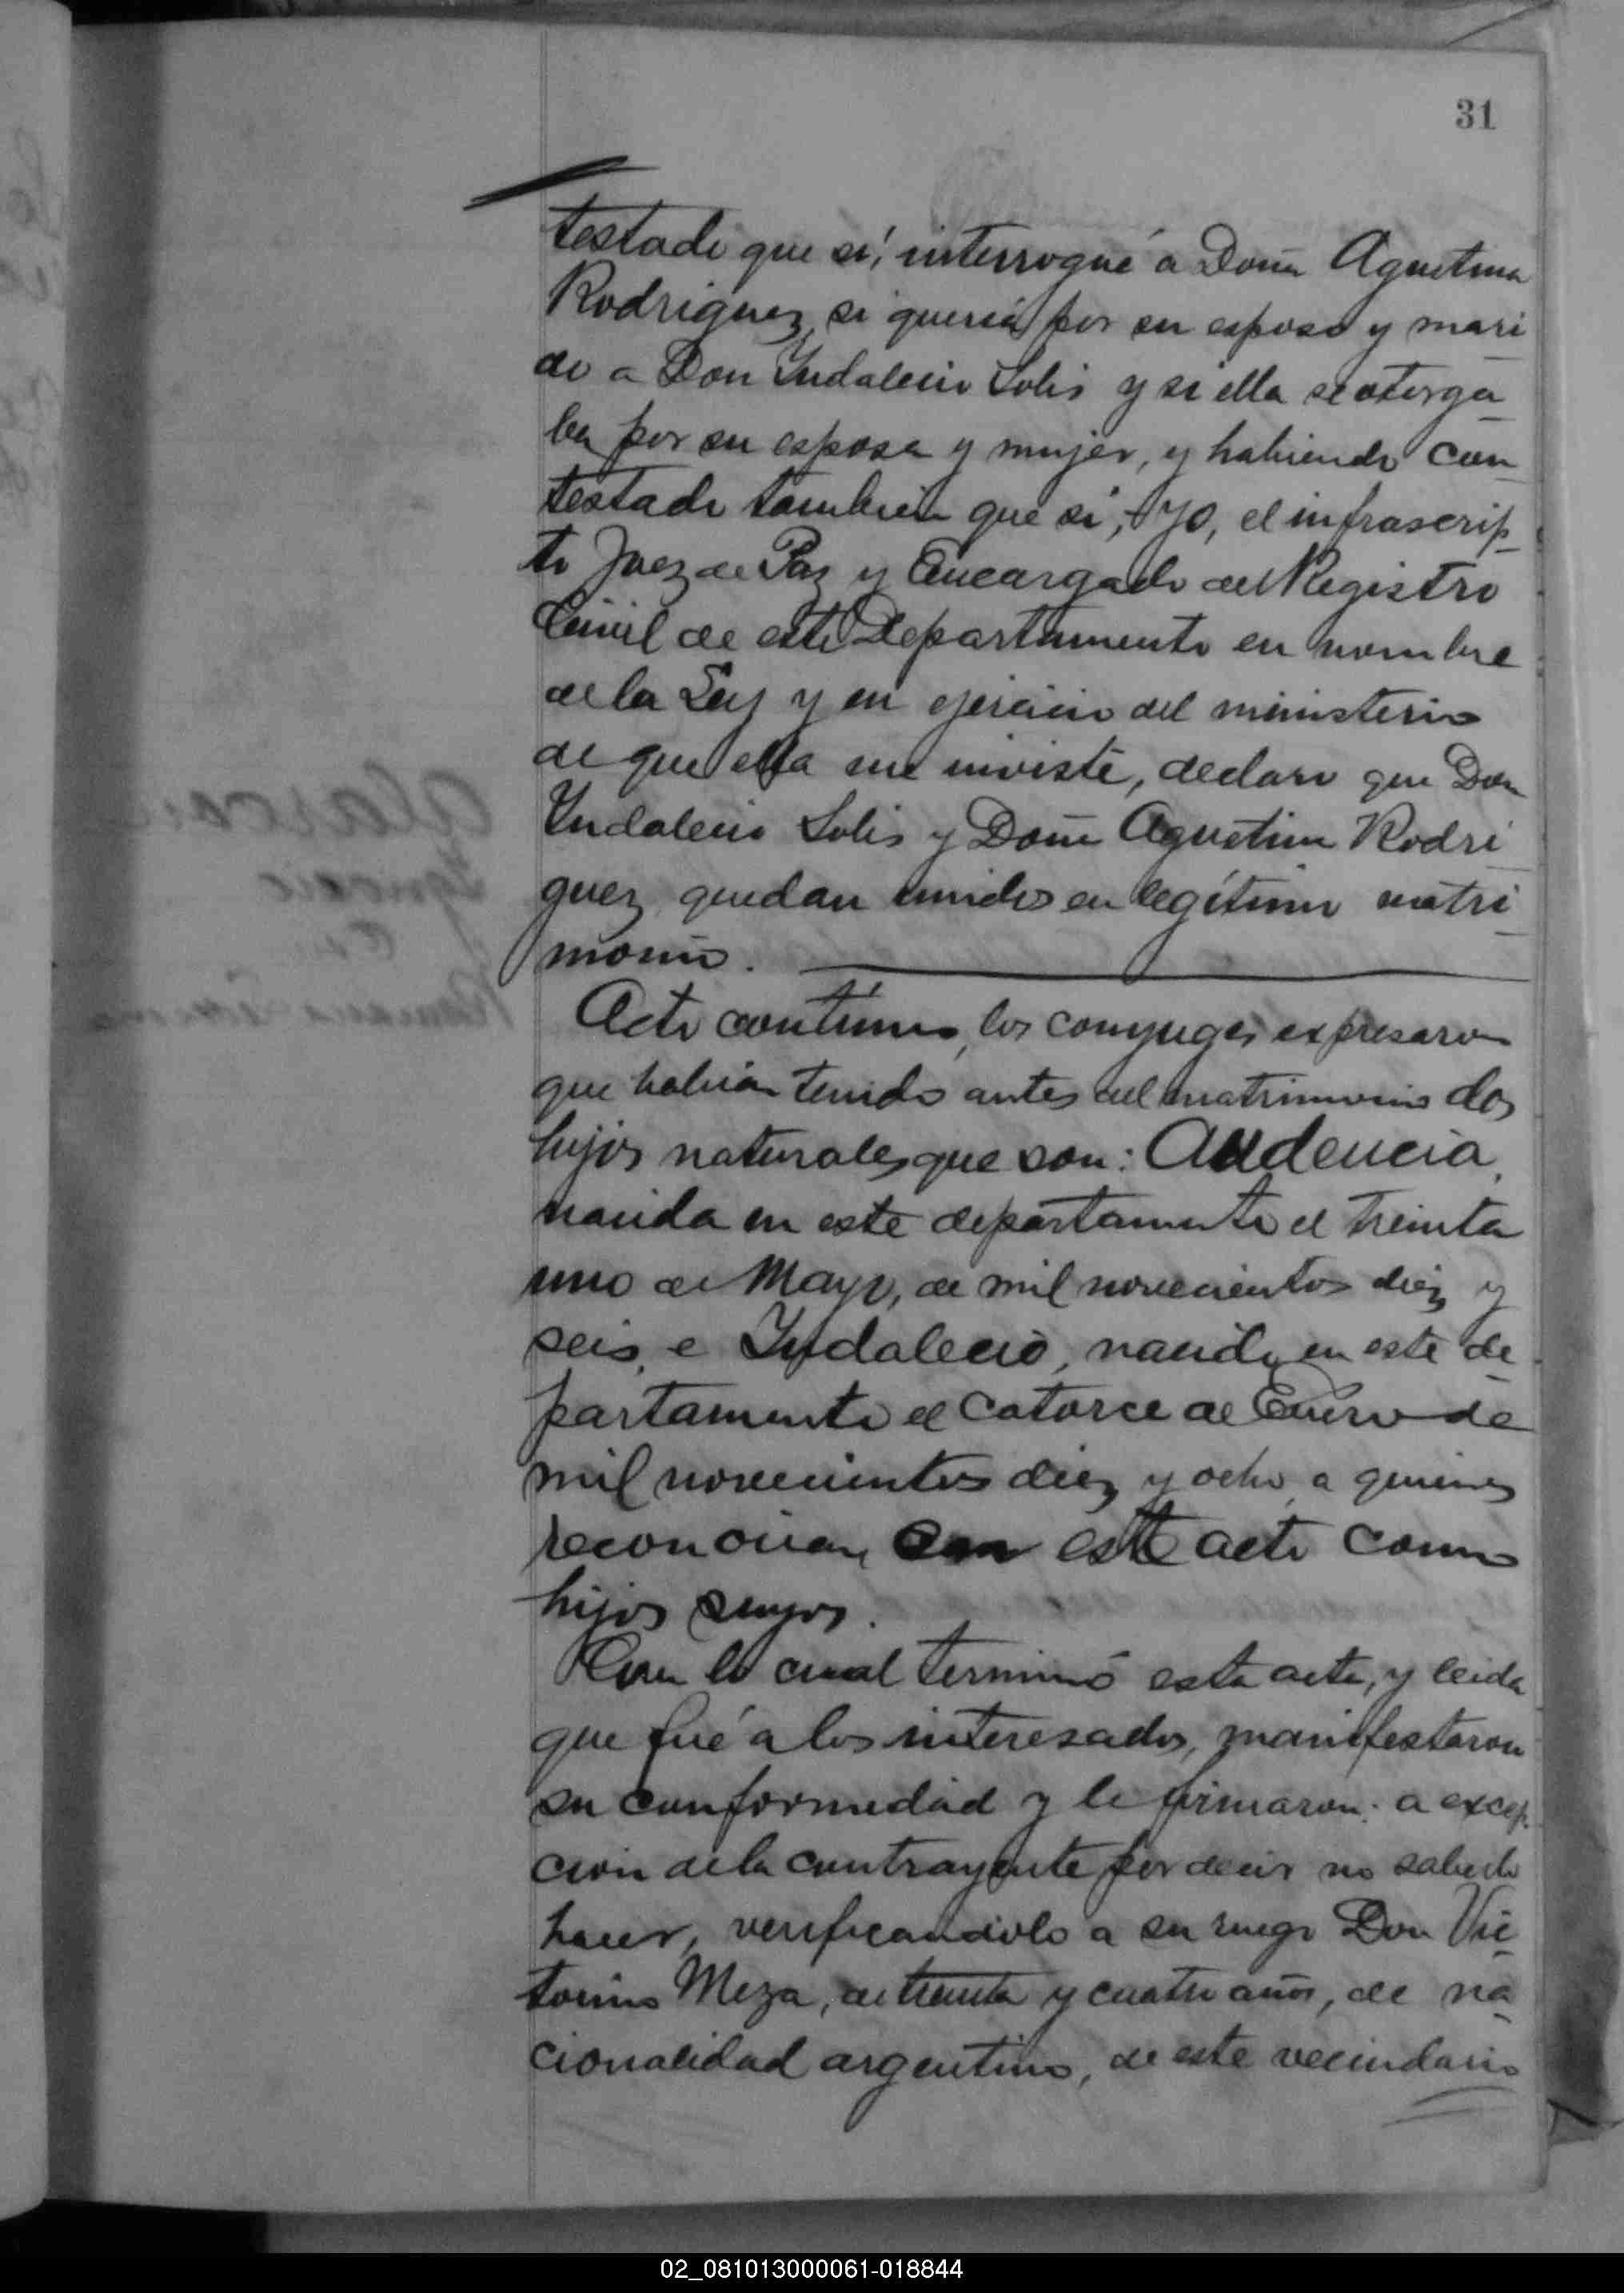 31
testado que sí, interrogué a Doña Agustina
Rodriguez, si quería por su esposo y mari
do a Don Indalecio Solis y si ella se otorga
ba por su esposa y mujer, y habiendo con
testado también que sí, - Yo, el infrascrip
to Juez de Paz y Encargado del Registro
Civil de este Departamento en nombre
de la Ley y en ejercicio del ministerio
de que ella me inviste, declaro que Don
Indalecio Solis y Doña Agustina Rodri
guez, quedan unidos en legítimo matri
monio.
Acto contínuo, los conyuges expresaron
que habían tenido antes del matrimonio dos
hijos naturales que son: Audencia,
nacida en este departamento el treinta
uno de Mayo, de mil novecientos diez y
seis, e Indalecio, nacido en este de
partamento el catorce de Enero de
mil novecientos diez y ocho, a quienes
reconocian en este acto como
hijos suyos.
Con lo cual terminó esta acta, y leida
que fué a los interesados, manifestaron
su conformidad y la firmaron: a excep
ción de la contrayente por decir no saberlo
hacer, verificandolo a su ruego Don Vic
torino Meza, de treinta y cuatro años, de na
cionalidad argentino, de este vecindario
02_081013000061-018844